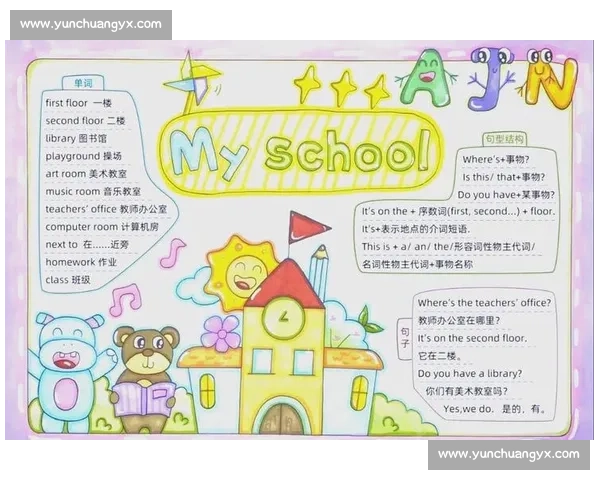 www.yunchuangyx.com
AJN
My school
单词
first floor 一楼
second floor 二楼
library 图书馆
playground 操场
art room 美术教室
music room 音乐教室
teachers' office 教师办公室
computer room 计算机房
next to 在……近旁
homework 作业
class 班级
句型结构
Where's+事物?
Is this/ that+事物?
Do you have+某事物?
It's on the + 序数词(first, second...) + floor.
It's+表示地点的介词短语.
This is + a/ an/ the/形容词性物主代词/
名词性物主代词+事物名称
句子
Where's the teachers' office?
教师办公室在哪里?
It's on the second floor.
它在二楼。
Do you have a library?
你们有美术教室吗?
Yes,we do. 是的，有。
www.yunchuangyx.com